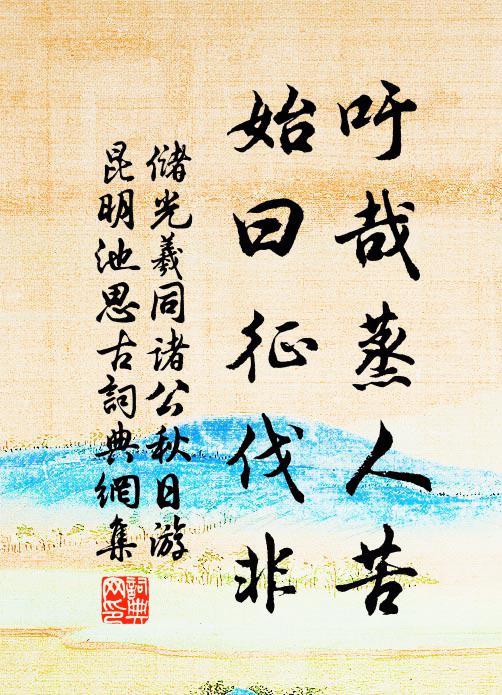 吁哉蒸人苦
始曰征伐非
储光羲同诸公秋日游
昆明池思古詞典網集
詞典